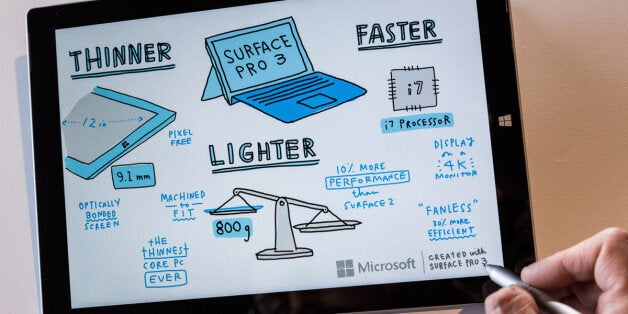 THINNER
SURFACE
PRO 3
FASTER
12 in
PIXEL
FREE
9.1 mm
i7
i7 PROCESSOR
LIGHTER
DISPLAY
on a
4K
MONITOR
10% MORE
PERFORMANCE
than
SURFACE 2
OPTICALLY
BONDED
SCREEN
MACHINED
to
FIT
800g
"FANLESS"
30% MORE
EFFICIENT
the
THINNEST
CORE PC
EVER
Microsoft
CREATED with
SURFACE PRO 3